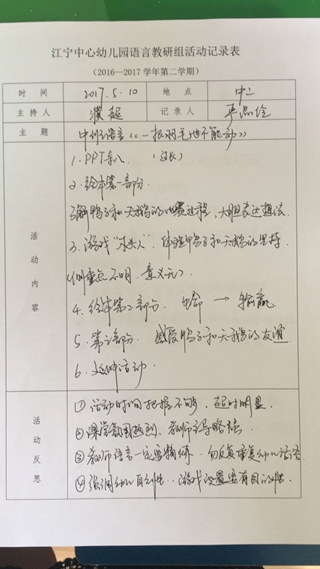 江宁中心幼儿园语言教研组活动记录表
(2016—2017学年第二学期)
时间 2017.5.10 地点 中二
主持人 记录人
主题 中班语言《一根羽毛也不能动》
活动内容
1.PPT导入 (过长)
2.绘本第一部分
了解鸭子和天鹅的比赛过程,大胆表达想法
3.游戏“木头人”,体验鸭子和天鹅的坚持
(侧重点不明,意义无)
4.绘本第二部分 生命 → 输赢
5.第三部分 感受鸭子和天鹅的友谊
6.延伸活动
活动反思
①活动时间把握不够,延时明显
②课堂氛围热烈,教师主导略强
③教师语言一定要精炼,勿反复重复幼儿话语
④强调幼儿自主性,游戏设置要有目的性